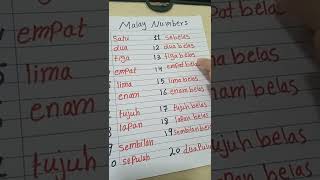 Malay Numbers
Satu 11 sebelas
dua 12 dua belas
tiga 13 tiga belas
empat 14 empat belas
lima 15 lima belas
enam 16 enam belas
tujuh 17 tujuh belas
lapan 18 lapan belas
sembilan 19 sembilan be
sepuluh 20 dua Pulu
empat
lima
enam
tujuh
belas